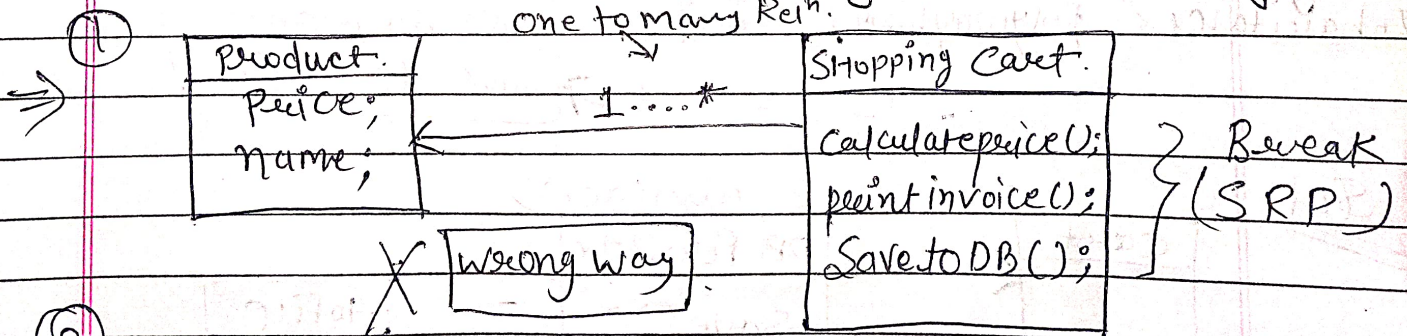 One to many Reln.
1
Product.
Price;
name;
1.....*
Shopping Cart.
calculateprice();
printinvoice();
SavetoDB();
Break
(SRP)
X
Wrong way